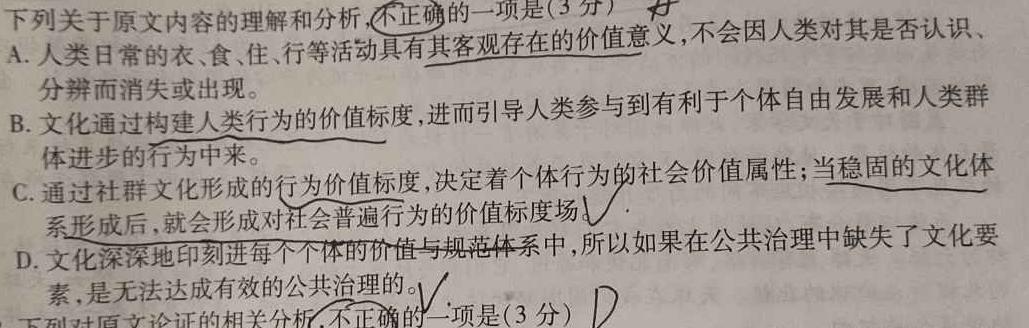 下列关于原文内容的理解和分析,不正确的一项是(3分)
A. 人类日常的衣、食、住、行等活动具有其客观存在的价值意义,不会因人类对其是否认识、
分辨而消失或出现。
B. 文化通过构建人类行为的价值标度,进而引导人类参与到有利于个体自由发展和人类群
体进步的行为中来。
C. 通过社群文化形成的行为价值标度,决定着个体行为的社会价值属性;当稳固的文化体
系形成后,就会形成对社会普遍行为的价值标度场。
D. 文化深深地印刻进每个个体的价值与规范体系中,所以如果在公共治理中缺失了文化要
素,是无法达成有效的公共治理的。
下列对原文论证的相关分析,不正确的一项是(3分) D